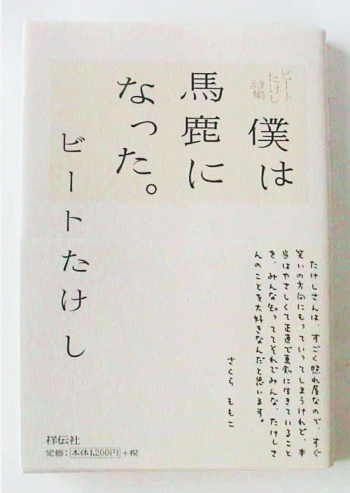 ビート
たけし
詩集
僕は
馬鹿に
なった。
ビートたけし
たけしさんは、すごく照れ屋なので、すぐ
笑いの方向にもっていってしまうけれど、本
当はやさしくて正直で真剣に生きていること
を、みんな知っててそれでみんな、たけしさ
んのことを大好きなんだと思います。
さくら ももこ
祥伝社
定価:本体1,200円+税